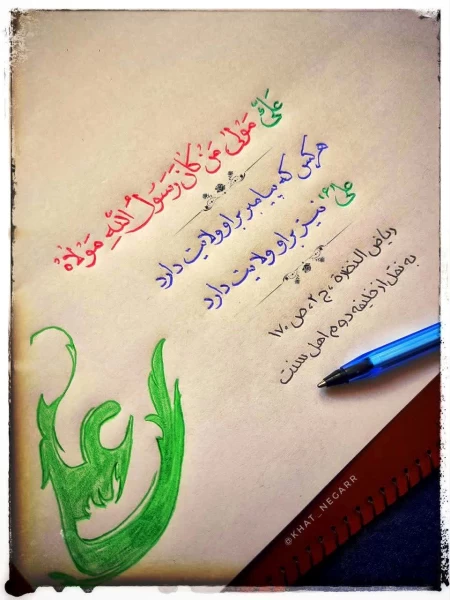 عَلِيٌّ مَوْلىٰ مَنْ كَانَ رَسُولُ اللهِ مَوْلَاهُ
هرکس که پیامبر بر او ولایت دارد
علی نیز بر او ولایت دارد
ریاض النضرة، ج۲، ص۱۷۰
به نقل از خلیفه دوم اهل سنت
علی
@KHAT_NEGARR